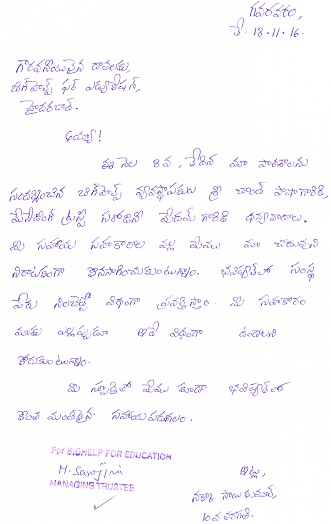 గవరవరం,
తే. 18-11-16.
గౌరవనీయులైన దాతలకు,
బిగ్‌హెల్ప్ ఫర్ ఎడ్యుకేషన్,
హైదరాబాద్.
అయ్యా!
ఈ నెల 8వ తేదిన మా పాఠశాలను
సందర్శించిన బిగ్‌హెల్ప్ వ్యవస్థాపకులు శ్రీ చాంద్ పాషాగారికి,
మేనేజింగ్ ట్రస్టి సరోజిని మేడమ్ గారికి ధన్యవాదాలు.
మీ సహాయ సహకారాల వల్ల మేము మా చదువుని
నిరాటంకంగా కొనసాగించుకుంటున్నాం. భవిష్యత్‌లో సంస్థ
పేరు నిలబెట్టే విధంగా ప్రవర్తిస్తాం. మీ సహకారం
మాకు ఎల్లప్పుడూ ఇదే విధంగా ఉండాలని
కోరుకుంటున్నాం.
మీ స్ఫూర్తితో మేము కూడా భవిష్యత్‌లో
కొంత మందికైనా సహాయపడగలం.
For BIGHELP FOR EDUCATION
H. Sarojini
MANAGING TRUSTEE
ఇట్లు,
సాయి కుమార్,
10వ తరగతి.